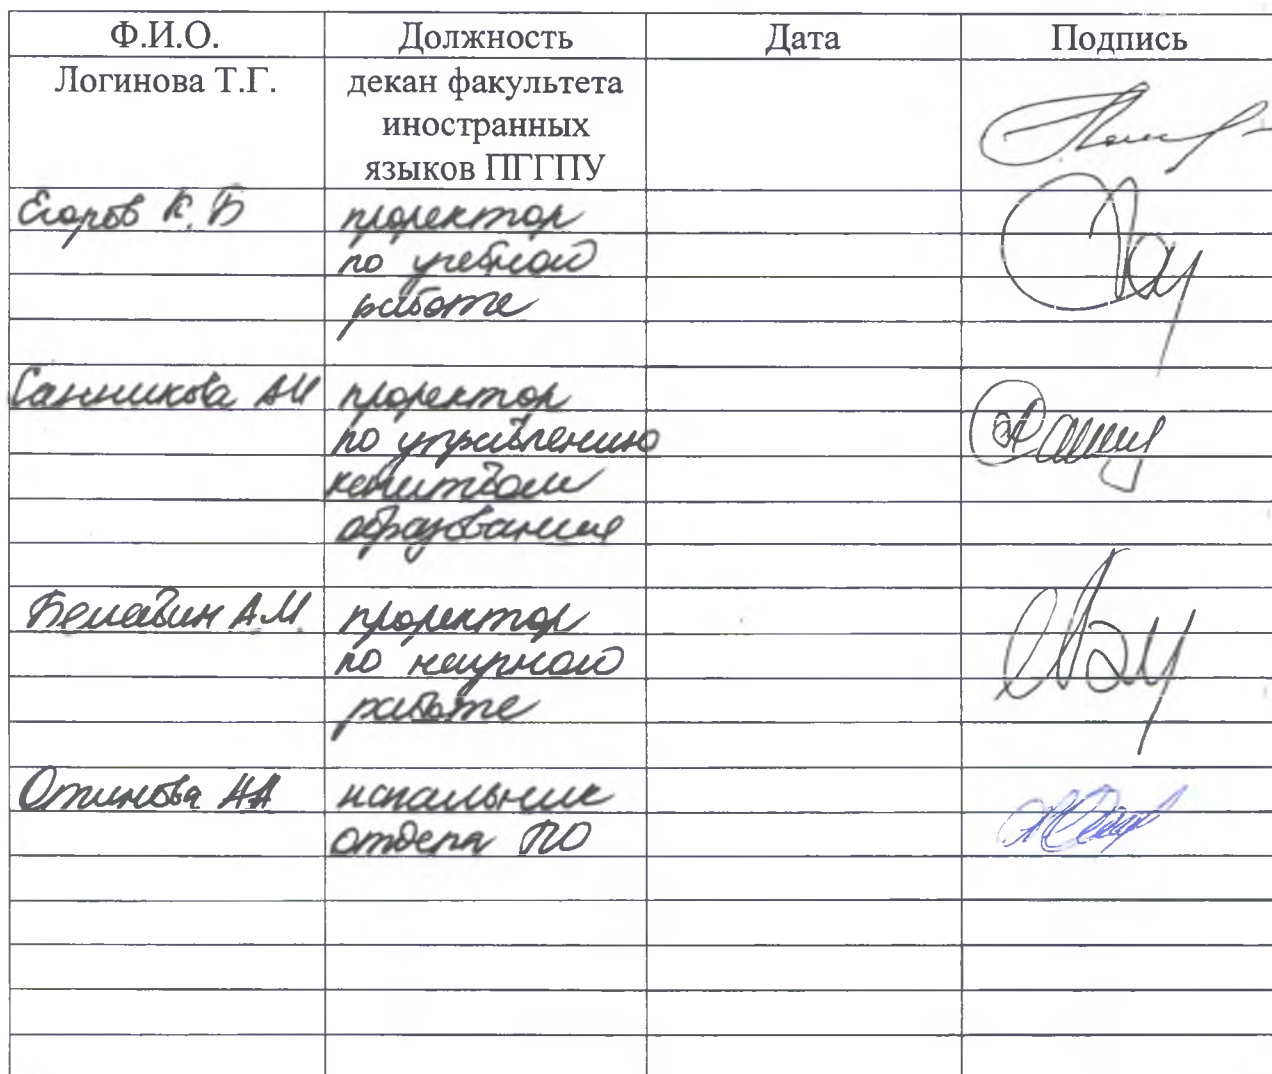 Ф.И.О. Должность Дата Подпись
Логинова Т.Г. декан факультета
иностранных
языков ПГГПУ
Егоров К.Б проректор
по учебной
работе
Санникова АИ проректор
по управлению
качеством
образования
Белавин А.М. проректор
по научной
работе
Отинова НА начальник
отдела ПО